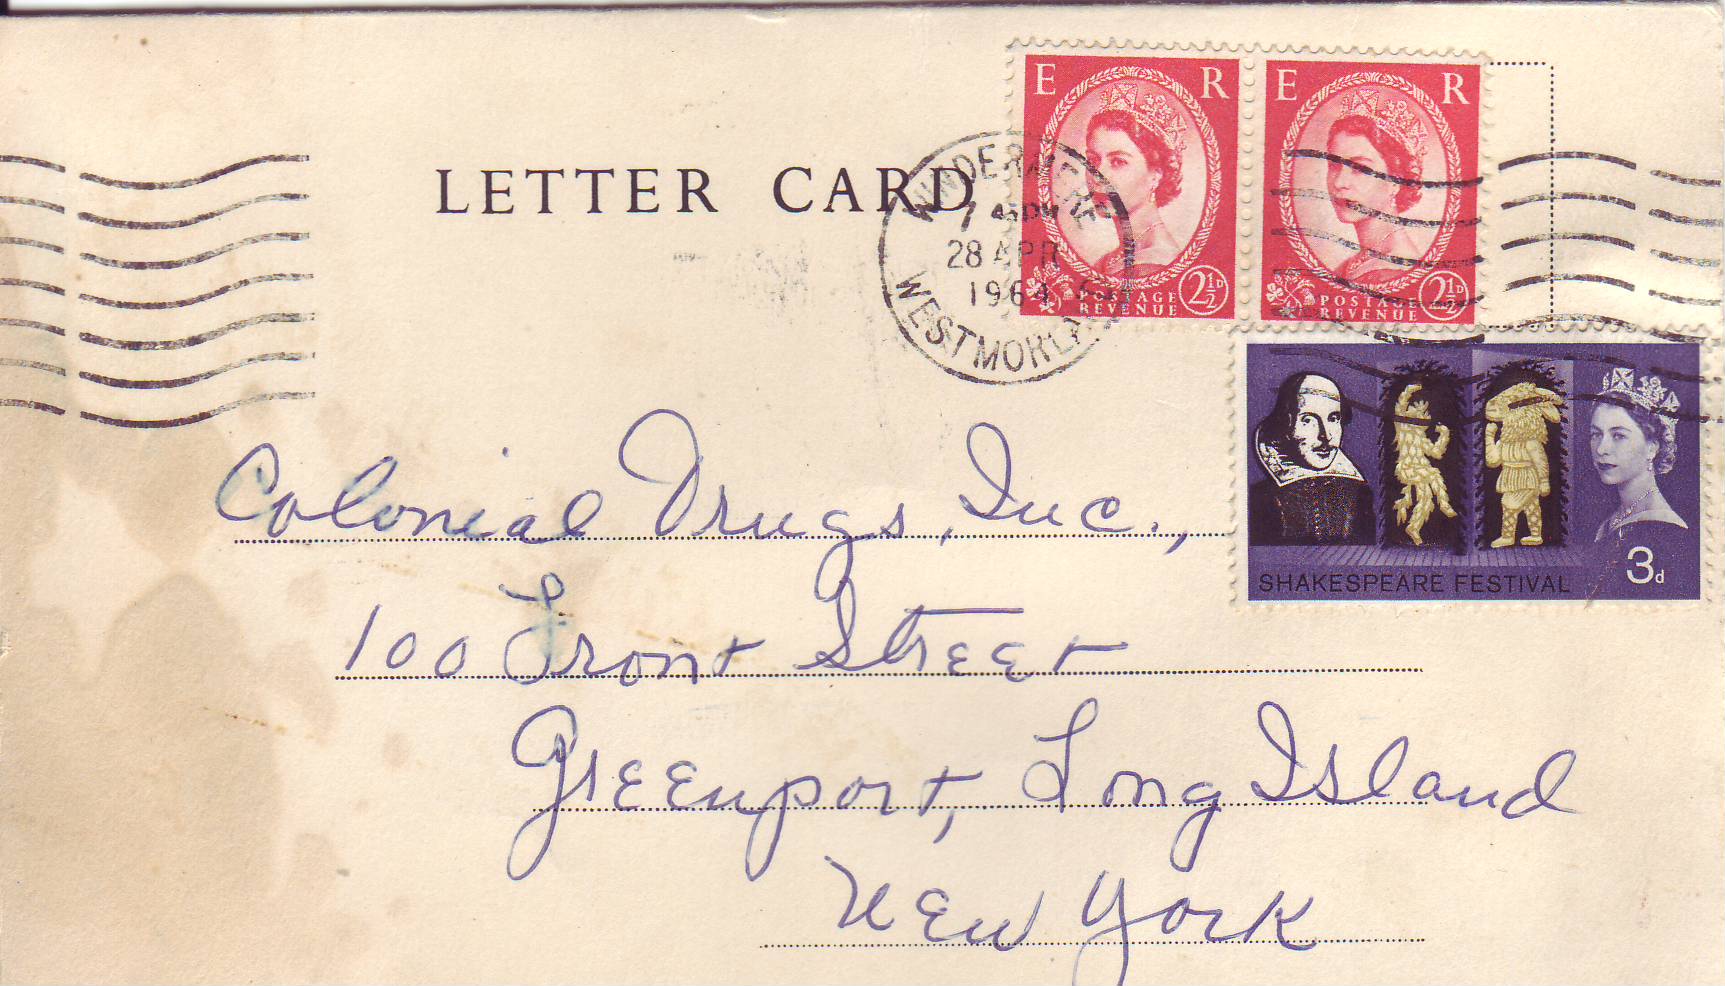 LETTER CARD
E R
POSTAGE
REVENUE
2½D
E R
POSTAGE
REVENUE
2½D
WINDERMERE
7 45 PM
28 APR
1964
WESTMORLA
SHAKESPEARE FESTIVAL
3d
Colonial Drugs, Inc.,
100 Front Street
Greenport, Long Island
New York